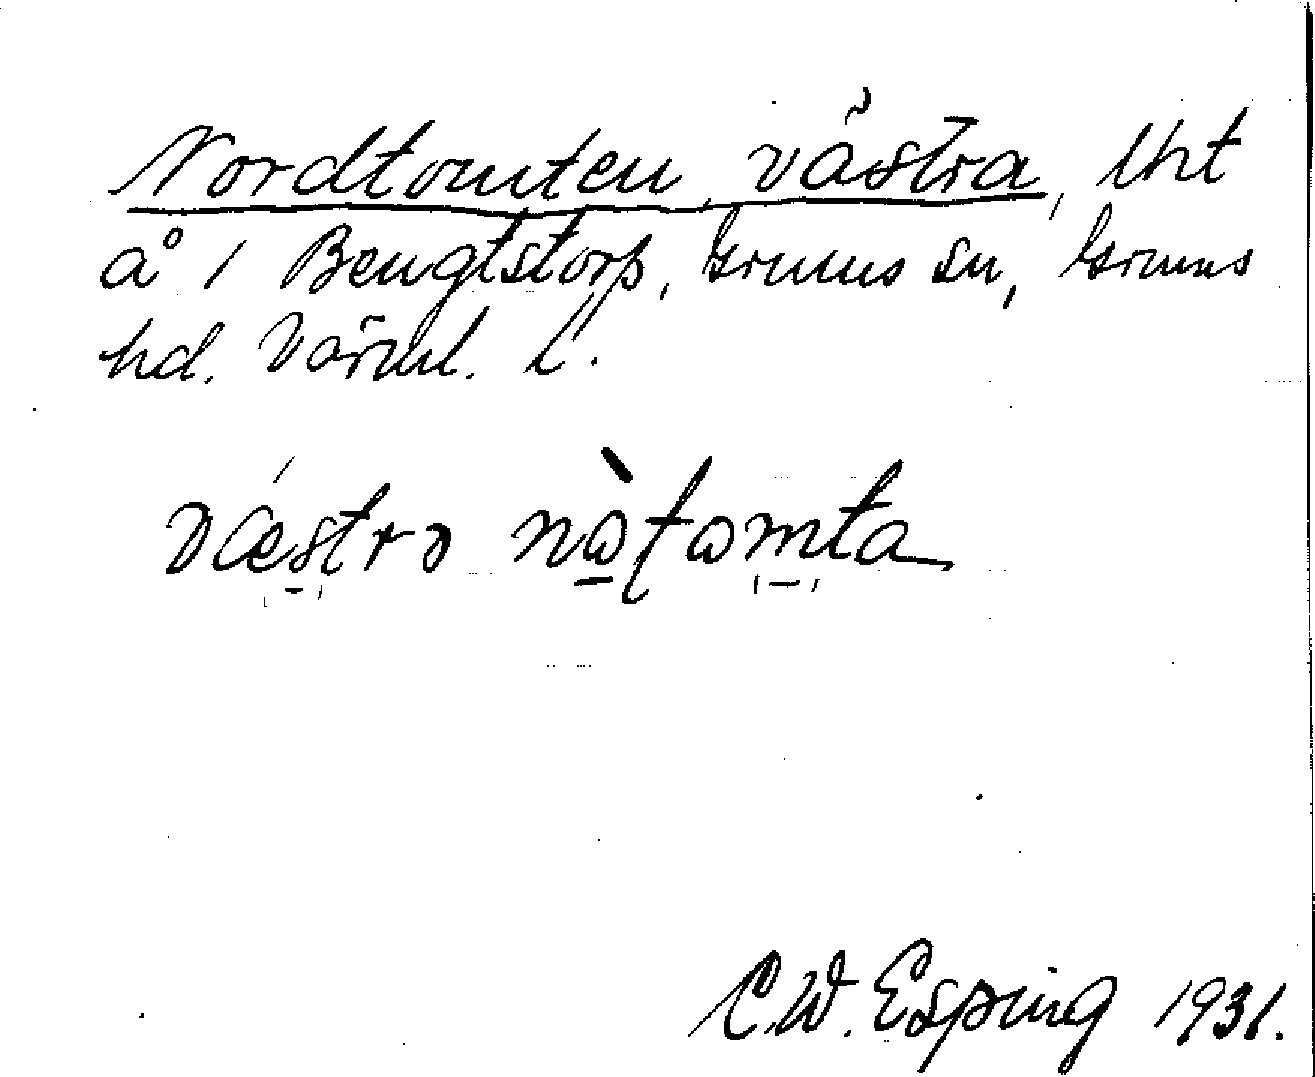 Nordtomten, västra, lht
å 1 Bengtstorp, Grums sn, Grums
hd. Värml. l.
væstrɔ nɷ̀ƭɷmta
C.W. Esping 1931.